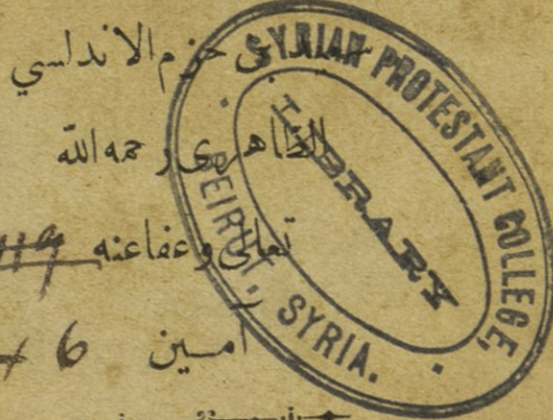 حزم الاندلسي
الظاهرى رحمه الله
تعالى وعفا عنه
آمين
6
SYRIAN PROTESTANT COLLEGE,
LIBRARY
BEIRUT, SYRIA.